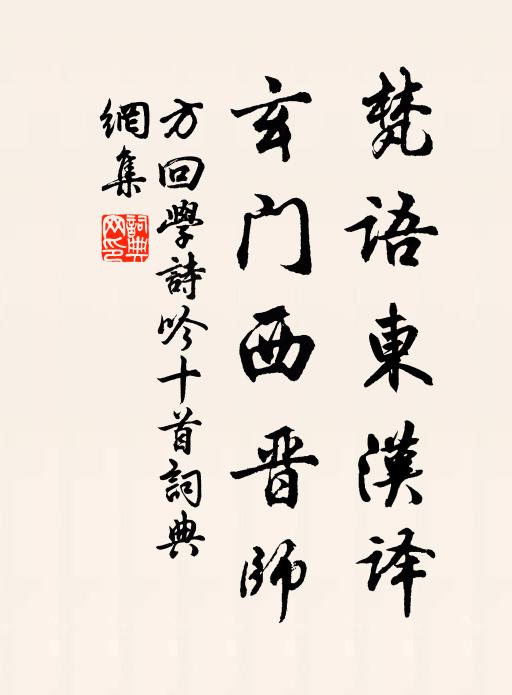 梵語東漢译
玄门西晋師
方回學詩吟十首詞典
網集
詞典
网印